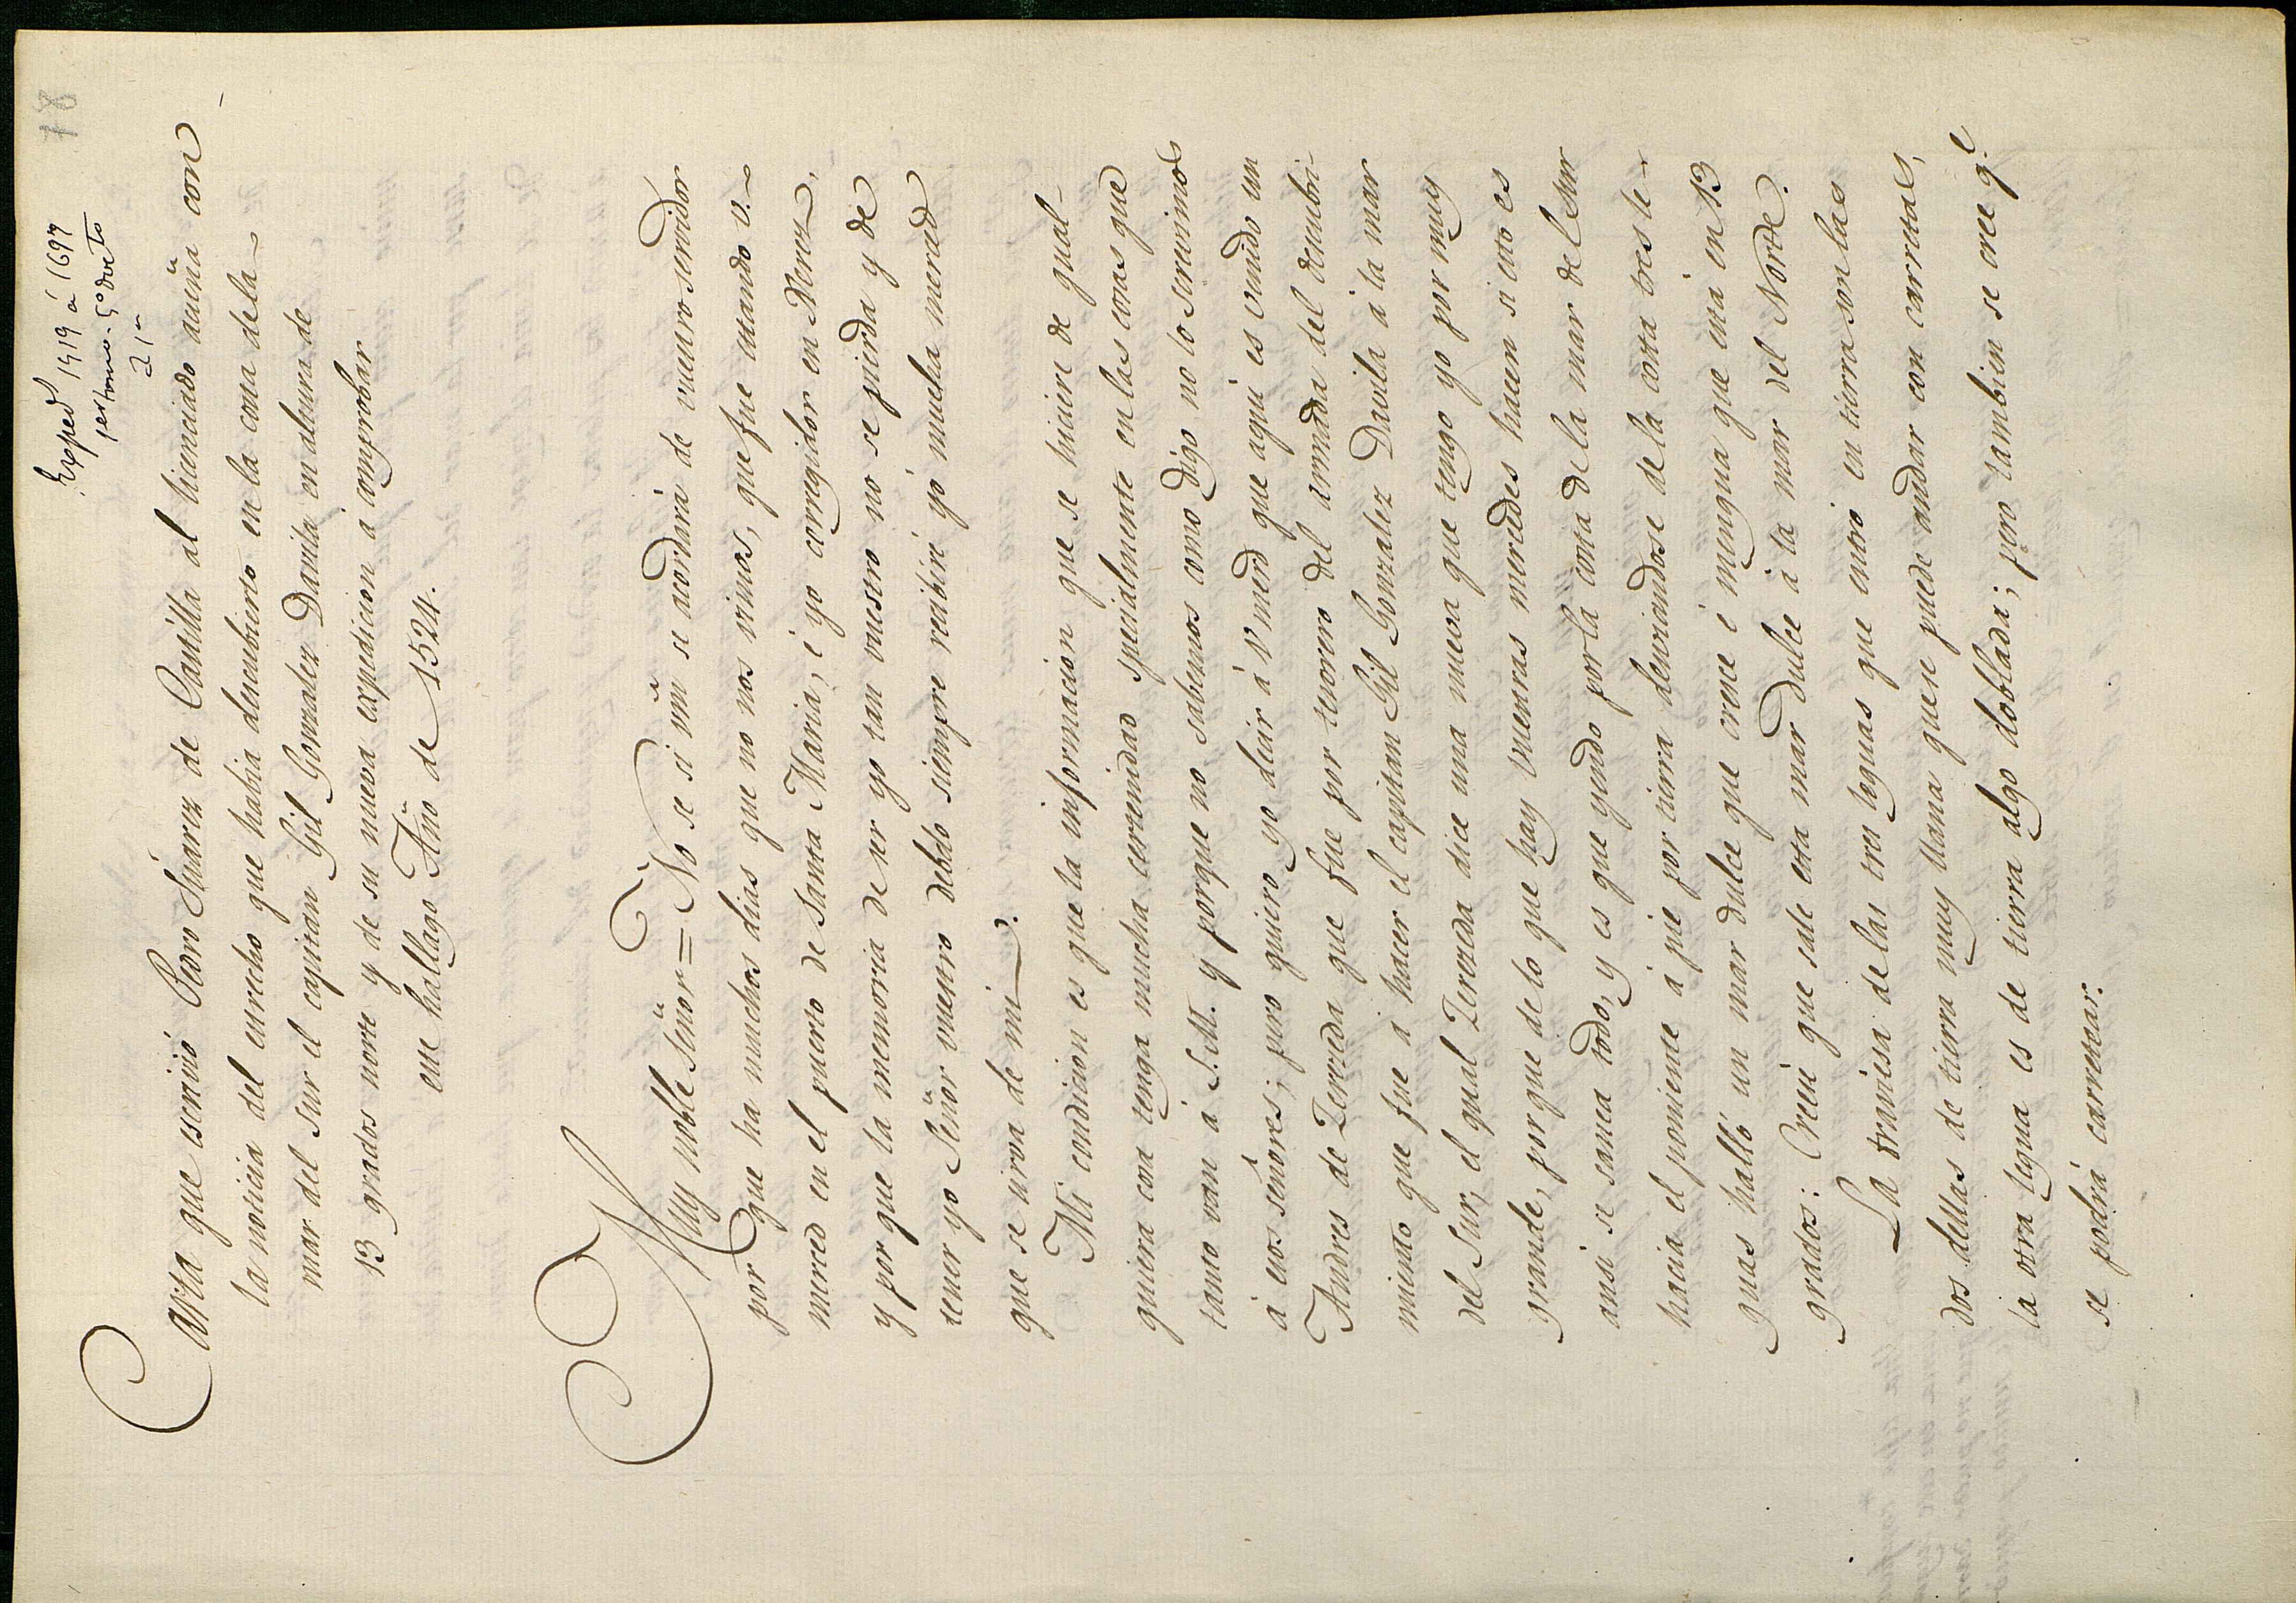 78
Exped 1519 á 1697
Carta que escrivió Pedro Suarez de Castilla al licenciado acuña con
la noticia del estrecho que habia descubierto en la costa de la
mar del sur el capitan Gil Gonzalez Davila en altura de
13 grados norte y de su nueva expedicion á comprobar
ese hallago Año de 1524.
Muy noble Señor = No se si vm̃ se acordará de vuestro servidor
por que ha muchos dias que no nos vimos, que fue estando v.
merced en el puerto de Santa Maria, é yo corregidor en Xerez,
y por que la memoria de ser yo tan vuestro no se pierda y de
tener yo Señor vuestro debdo siempre recibiré yó mucha merced
que se sirva de mi.
Mi condicion es que la informacion que se hiciere de qual-
quiera cosa tenga mucha cerzenidad specialmente en las cosas que
tanto van á S. M. y porque no sabemos como digo no lo screvimos
á esos señores; pero quiero yo decir á Vmerd que aqui es venido un
Andres de Zereceda que fue por tesorero del armada del descubri-
miento que fue a hacer el capitan Gil Gonzalez Davila á la mar
del Sur, el qual Zerezeda dice una nueva que tengo yo por muy
grande, por que de lo que hay vuestras mercedes hacen si esto es
ansi se sanea todo, y es que yendo por la costa de la mar del sur
hacia el poniente á pie por tierra desviandose de la costa tres le-
guas halló un mar dulce que cresce é mengua que está en 13
grados: Creese que sale esta mar dulce á la mar del Norte.
La traviesa de las tres leguas que entró en tierra son las
dos dellas de tierra muy llana que se puede andar con carretas,
la otra legua es de tierra algo doblada; pero tambien se cree q.e
se podrá carretear.